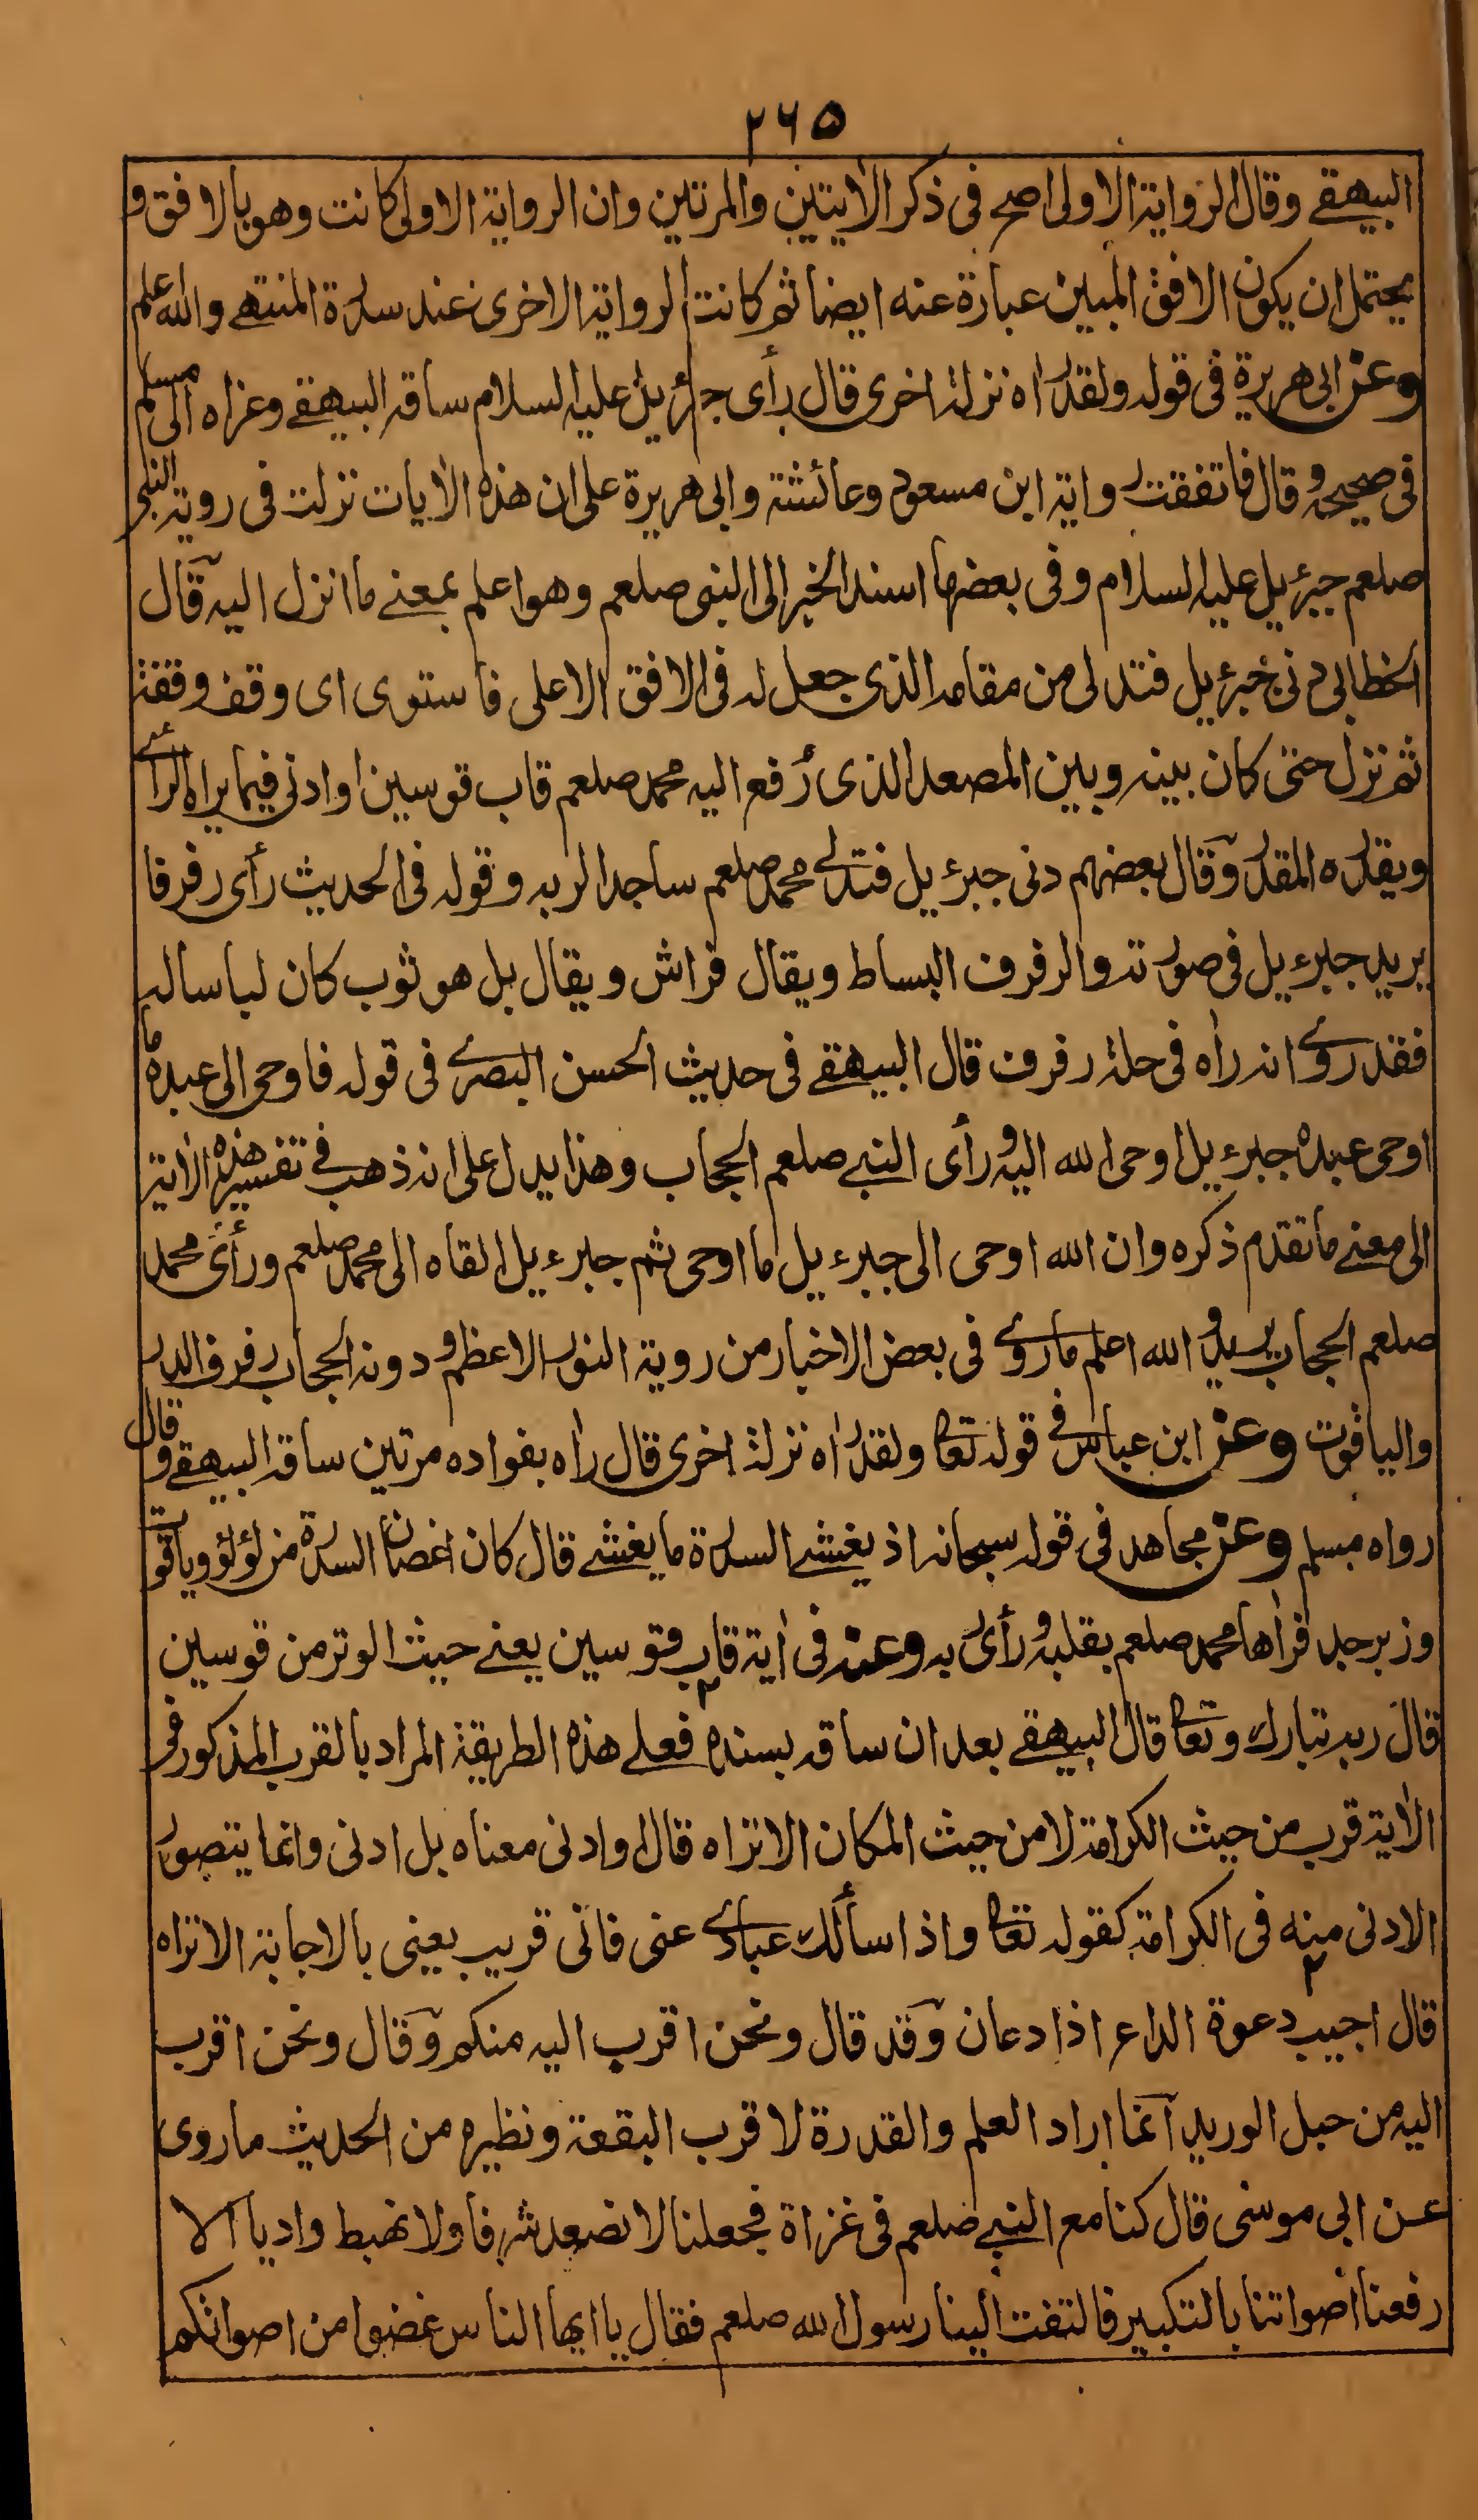 ٢٦٥
البيهقے وقال الرواية الاولى اصح فى ذكر الآيتين والمرتين وان الرواية الاولى كانت وهو بالافق و
يحتمل ان يكون الافق المبين عبارة عنه ايضا ثم كانت الرواية الاخرى عند سدرة المنتهے والله اعلم
وعن ابى هريرة فى قوله ولقد راه نزلة اخرى قال رأى جبرئيل عليه السلام ساقه البيهقے وعزاه الى مسلم
فى صحيحه وقال فاتفقت رواية ابن مسعود وعائشة وابى هريرة على ان هذه الآيات نزلت فى روية النبى
صلعم جبرئيل عليه السلام وفى بعضها اسند الخبر الى النبى صلعم وهو اعلم بمعنے ما انزل اليه قال
الخطابى دنى جبرئيل فتدلى من مقامه الذى جعل له فى الافق الاعلى فاستوى اى وقف وقفة
ثم نزل حتى كان بينه وبين المصعد الذى رفع اليه محمد صلعم قاب قوسين او ادنى فيما يراه الرائے
ويقدره المقدر وقال بعضهم دنى جبرءيل فتدلے محمد صلعم ساجدا لربه وقوله فى الحديث رأى رفرفا
يريد جبرءيل فى صورته والرفرف البساط ويقال فراش ويقال بل هو ثوب كان لباسا له
فقد روے انه رأه فى حلة رفرف قال البيهقے فى حديث الحسن البصرے فى قوله فاوحى الى عبده ما
اوحى عبده جبرءيل اوحى الله اليه ورأى النبے صلعم الحجاب وهذا يدل على انه ذهب فے تفسير هذه الآية
الى معنے ما تقدم ذكره وان الله اوحى الى جبرءيل ما اوحى ثم جبرءيل القاه الى محمد صلعم ورأى محمد
صلعم الحجاب يريد والله اعلم ما روے فى بعض الاخبار من روية النور الاعظم ودونه الحجاب رفرف الدر
والياقوت وعن ابن عباس فے قوله تعا ولقد راه نزلة اخرى قال راه بفواده مرتين ساقه البيهقے وقال
رواه مسلم وعن مجاهد فى قوله سبحانه اذ يغشے السدرة ما يغشے قال كان اغصان السدرة من لؤلؤ وياقوت
وزبرجد فرأها محمد صلعم بقلبه ورأى ربه وعنه فى أية قاب قوسين يعنے حيث الوتر من قوسين
قال ربه تبارك وتعا قال البيهقے بعد ان ساقه بسنده فعلے هذه الطريقة المراد بالقرب المذكور فى
الآية قرب من حيث الكرامة لا من حيث المكان الا تراه قال او ادنى معناه بل ادنى وانما يتصور
الادنى منه فى الكرامة كقوله تعا واذا سألك عبادے عنى فانى قريب يعنى بالاجابة الا تراه
قال اجيب دعوة الداع اذا دعان وقد قال ونحن اقرب اليه منكم وقال ونحن اقرب
اليه من حبل الوريد انما اراد العلم والقدرة لا قرب البقعة ونظيره من الحديث ما روى
عن ابى موسى قال كنا مع النبے صلعم فى غزاة فجعلنا لا نصعد شرفا ولا نهبط واديا الا
رفعنا اصواتنا بالتكبير فالتفت الينا رسول الله صلعم فقال يا ايها الناس غضوا من اصواتكم